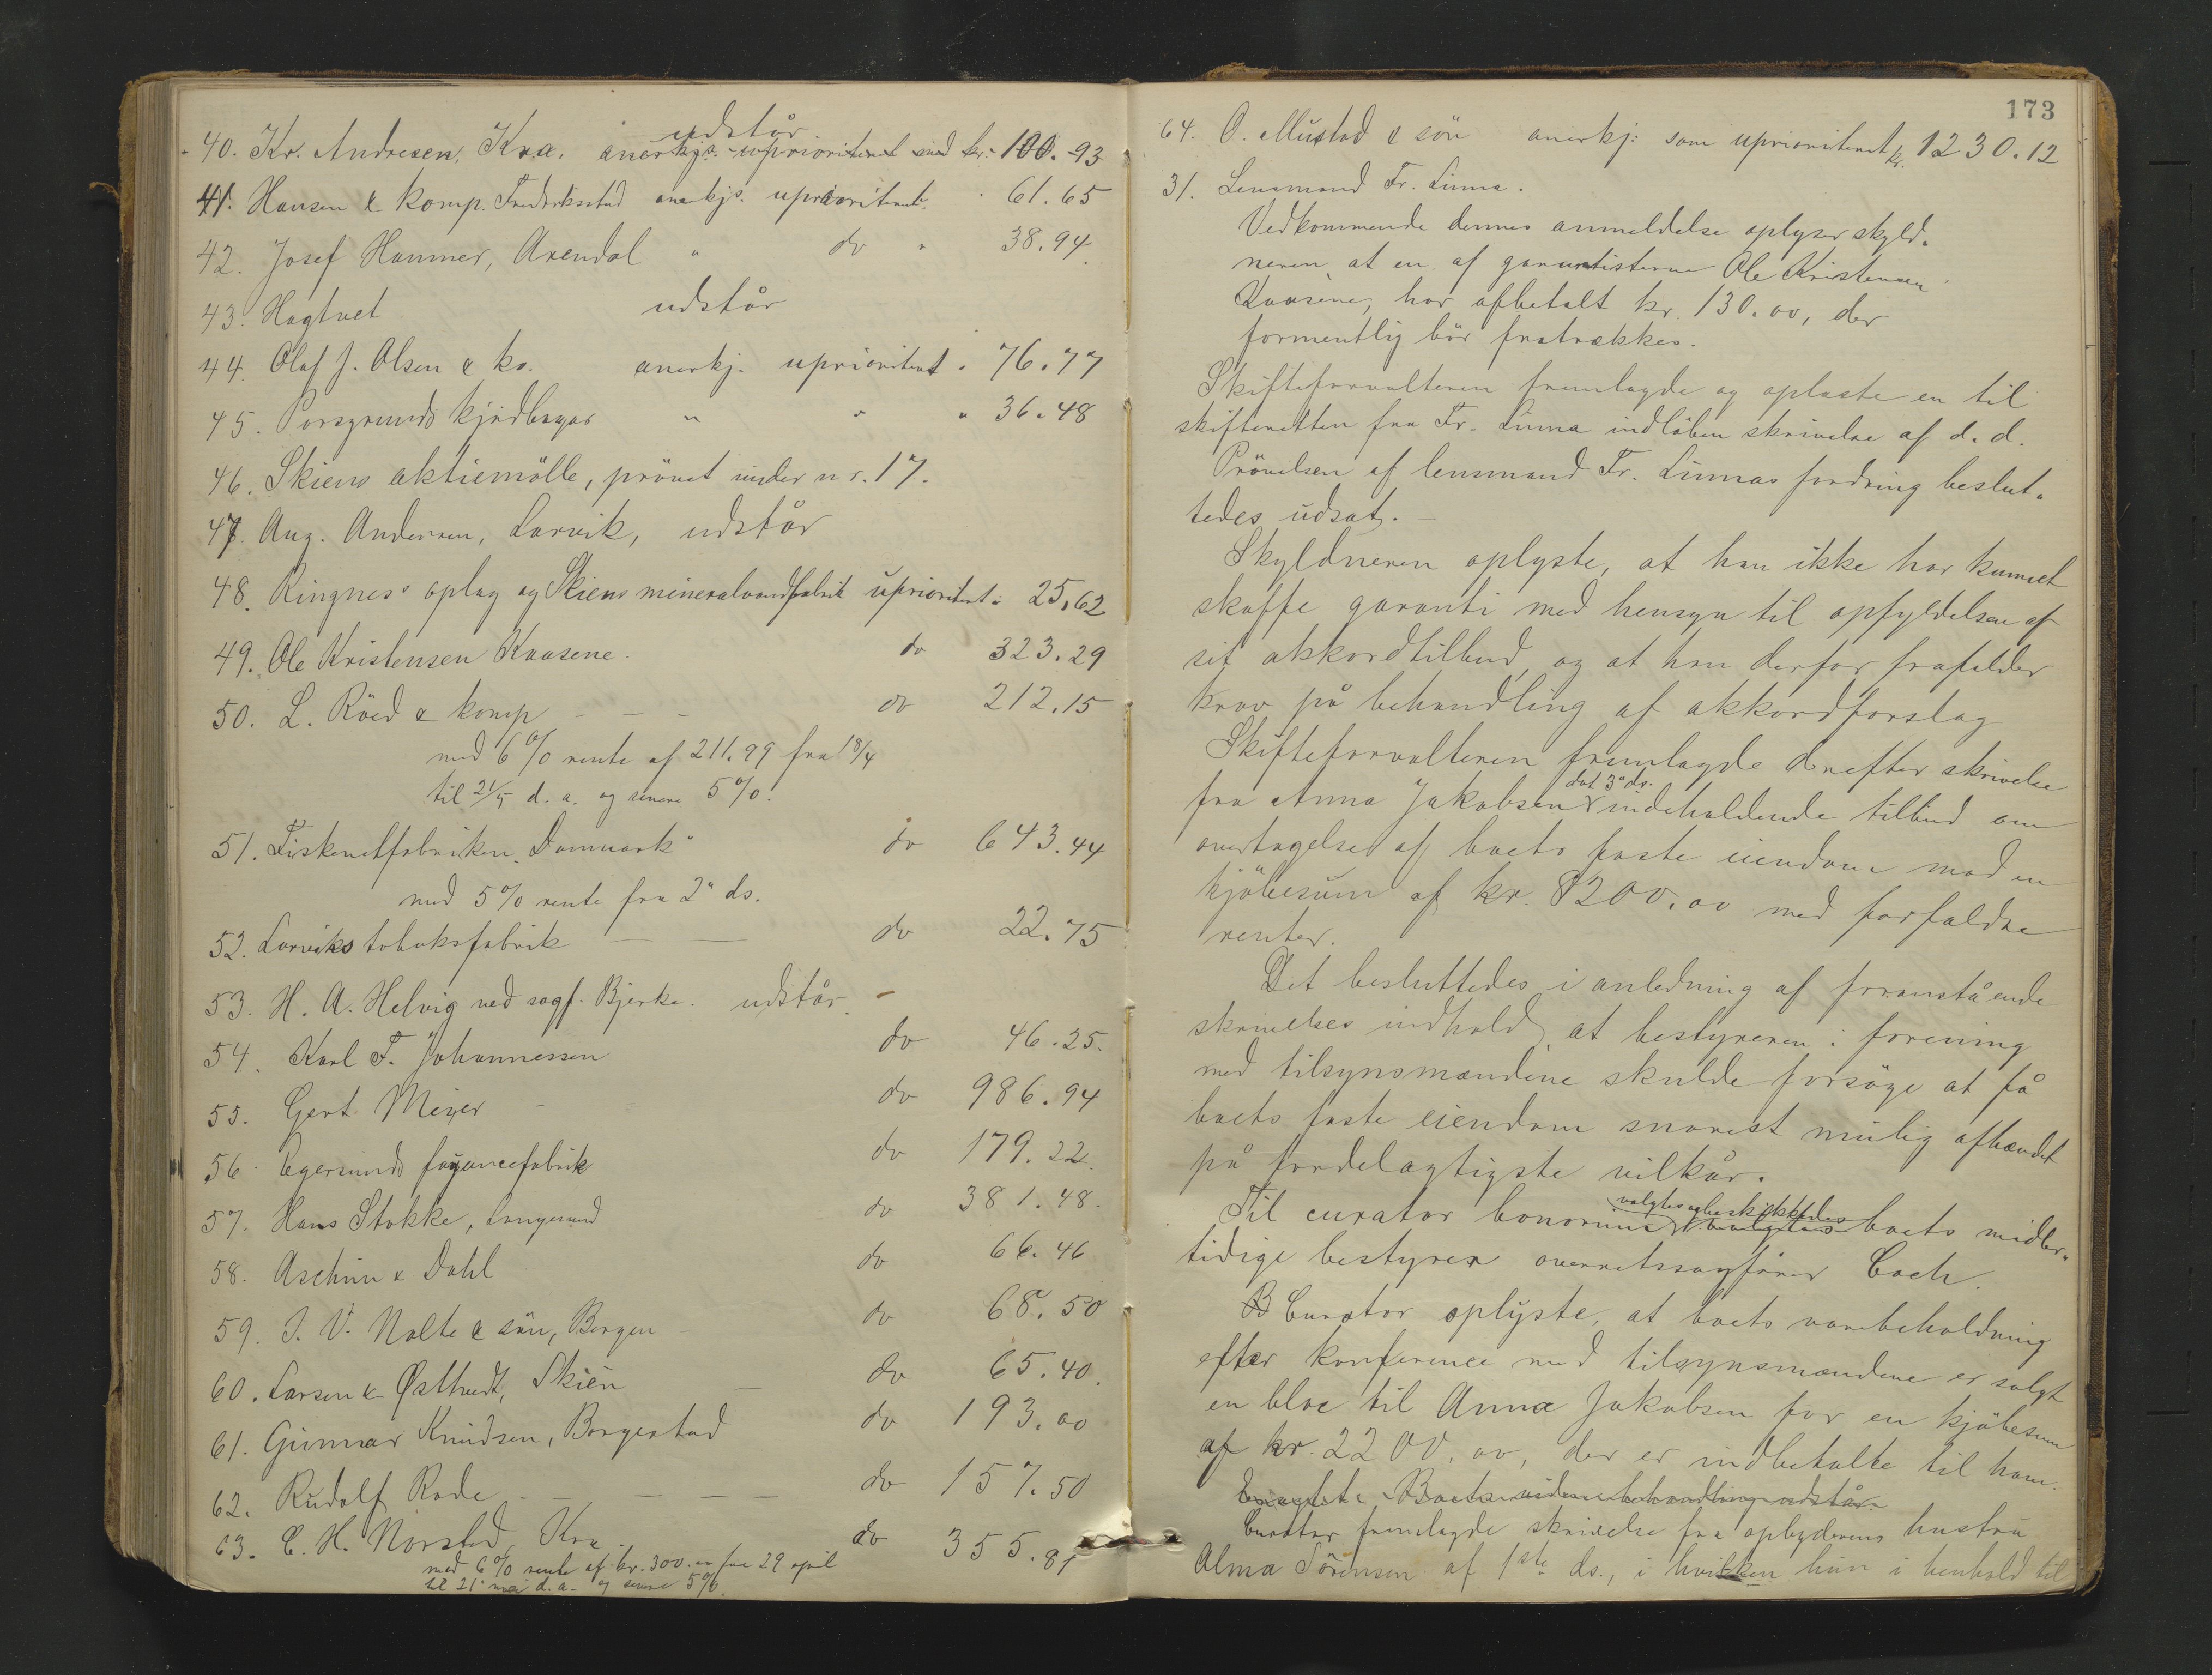 udstår
40. Kr. Andresen, Kra. anerkjs. uprioriteret med kr. 100.93
41. Hansen & komp. Fredrikstad anerkjs. uprioriteret " 61.65
42. Josef Hammer, Arendal " do " 38.94
43. Hagtvet udstår
44. Olaf J. Olsen & ko. anerkj. uprioritert " 76.77
45. Porsgrunds kjødbasar " " " 36.48
46. Skiens aktiemölle, prövet under nr. 17.
47. Aug. Andersen, Larvik, udstår
48. Ringnes's oplag og Skiens mineralvandfabrik uprioritert " 25,62
49. Ole Kristensen Kaasene. do 323.29
50. L. Röed & komp - - - do 212.15
med 6 % rente af 211.99 fra 18/4
til 21/5 d. a. og senere 5 %.
51. Fiskenetfabriken "Danmark" do 643.44
med 5 % rente fra 2" ds.
52. Larviks tobaksfabrik — — do 22.75
53. H. A. Helvig ved sagf. Bjerke. udstår. -
54. Karl F. Johannessen do 46.25.
55. Gert Meyer - - do 986.94
56. Egersunds fayancefabrik do 179.22.
57. Hans Stokke, Langesund do 381.48.
58. Aschim & Dahl do 66.46
59. J. V. Nolte & sön, Bergen - do 68.50
60. Larsen & Østtvedt, Skien — do 65.40.
61. Gunnar Knudsen, Borgestad do 193.00
62. Rudolf Rode - — — — do 157.50
63. C. H. Norsted, Kra. do 355.81
med 6 % rente af kr. 300.00 fra 29 april
til 21 mai d. a. og senere 5 %.
173
64. O. Mustad & sön anerkj: som uprioriteret kr. 1230.12
31. Lensmand Fr. Linna.
Vedkommende dennes anmeldelse oplyser skyld-
neren, at en af garantisterne Ole Kristensen
Kaasene, har afbetalt kr. 130.00, der
formentlig bör fratrækkes.
Skifteforvalteren fremlagde og oplæste en til
skifteretten fra Fr. Linna indløben skrivelse af d. d.
Prövelsen af lensmand Fr. Linnas fordring beslut-
tedes udsat. -
Skyldneren oplyste, at han ikke har kunnet
skaffe garanti med hensyn til opfyldelsen af
sit akkordtilbud, og at han derfor frafalder
krav på behandling af akkordforslag
Skifteforvalteren fremlagde derefter skrivelse
dat 3" ds.
fra Anna Jakobsen indeholdende tilbud om
overtagelse af boets faste eiendom mod en
kjöbesum af kr. 8200.00 med forfaldne
renter.
Det besluttedes i anledning af foranstående
skrivelses indhold, at bestyreren i forening
med tilsynsmændene skulde forsöge at få
boets faste eiendom snarest mulig afhændet
på fordelagtigste vilkår.
valgtes og beskikkedes
Til curator bonorum valgtes boets midler-
tidige bestyrer overretssagförer Coch.
B Curator oplyste, at boets varebeholdning
efter konference med tilsynsmændene er solgt
en bloc til Anna Jakobsen for en kjöbesum
af kr. 2200.00, der er indbetalte til ham.
Boets videre behandling udstår.
Curator fremlagde skrivelse fra opbyderens hustru
Alma Sörensen af 1ste ds., i hvilken hun i henhold til